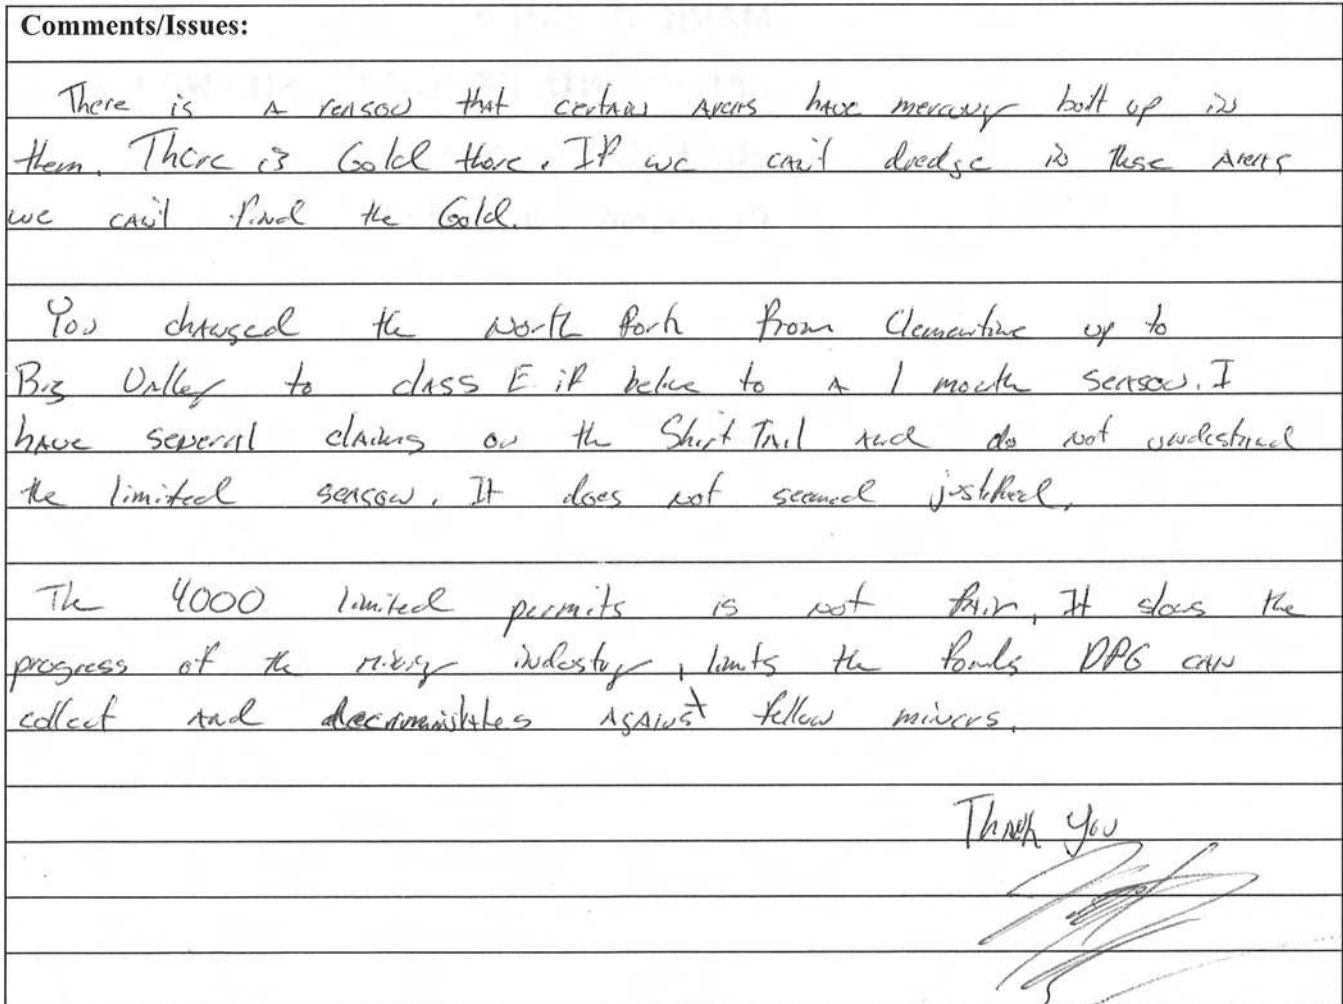 Comments/Issues:
There is A reason that certain Areas have mercury built up in
them. There is Gold there. If we can't dredge in these Areas
we can't find the Gold.
You changed the North fork from Clementine up to
Big Valley to class E if belive to A 1 month season. I
have several claims on the Shirt Tail and do not understand
the limited season. It does not seemed justified.
The 4000 limited permits is not fair, It slows the
progress of the mining industry, limits the funds DFG can
collect and against fellow miners.
Thank You